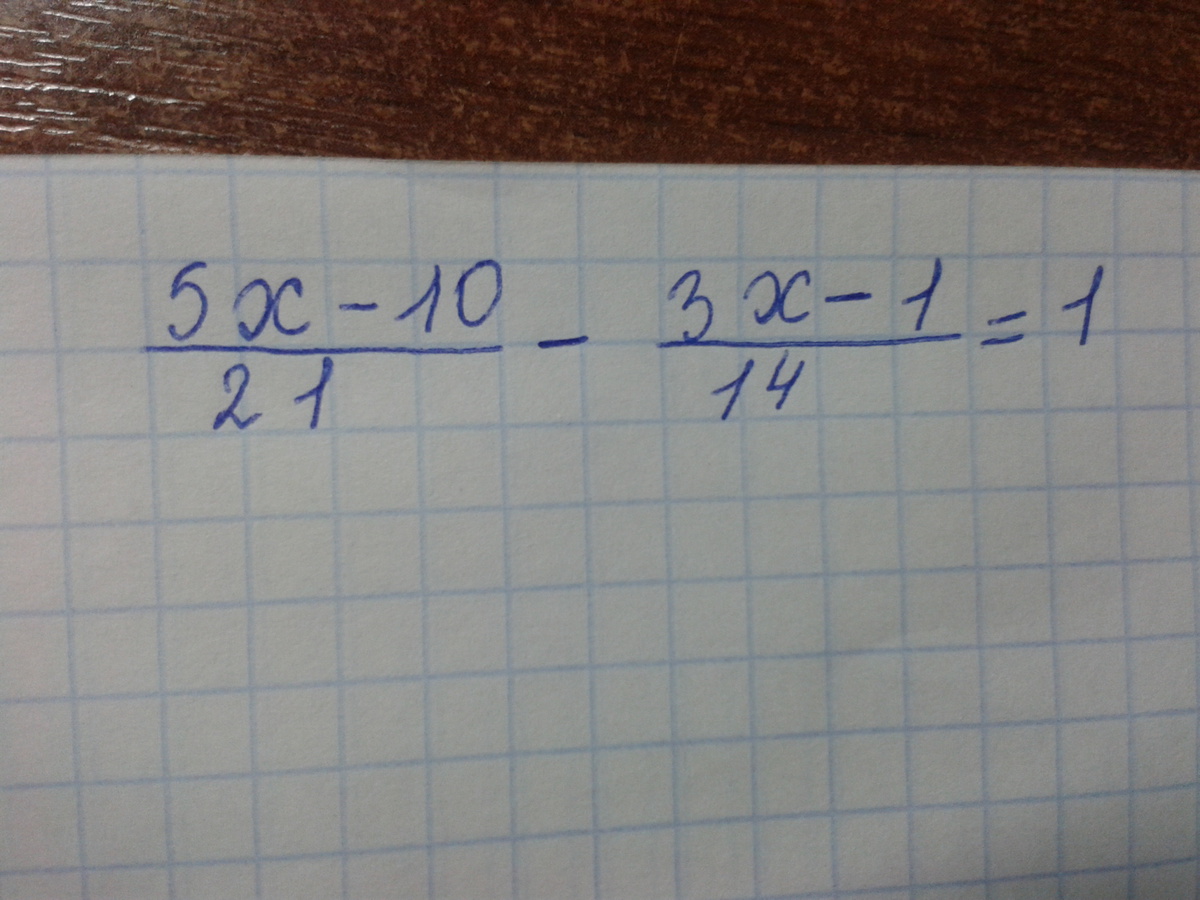 5x-10 / 21 - 3x-1 / 14 = 1